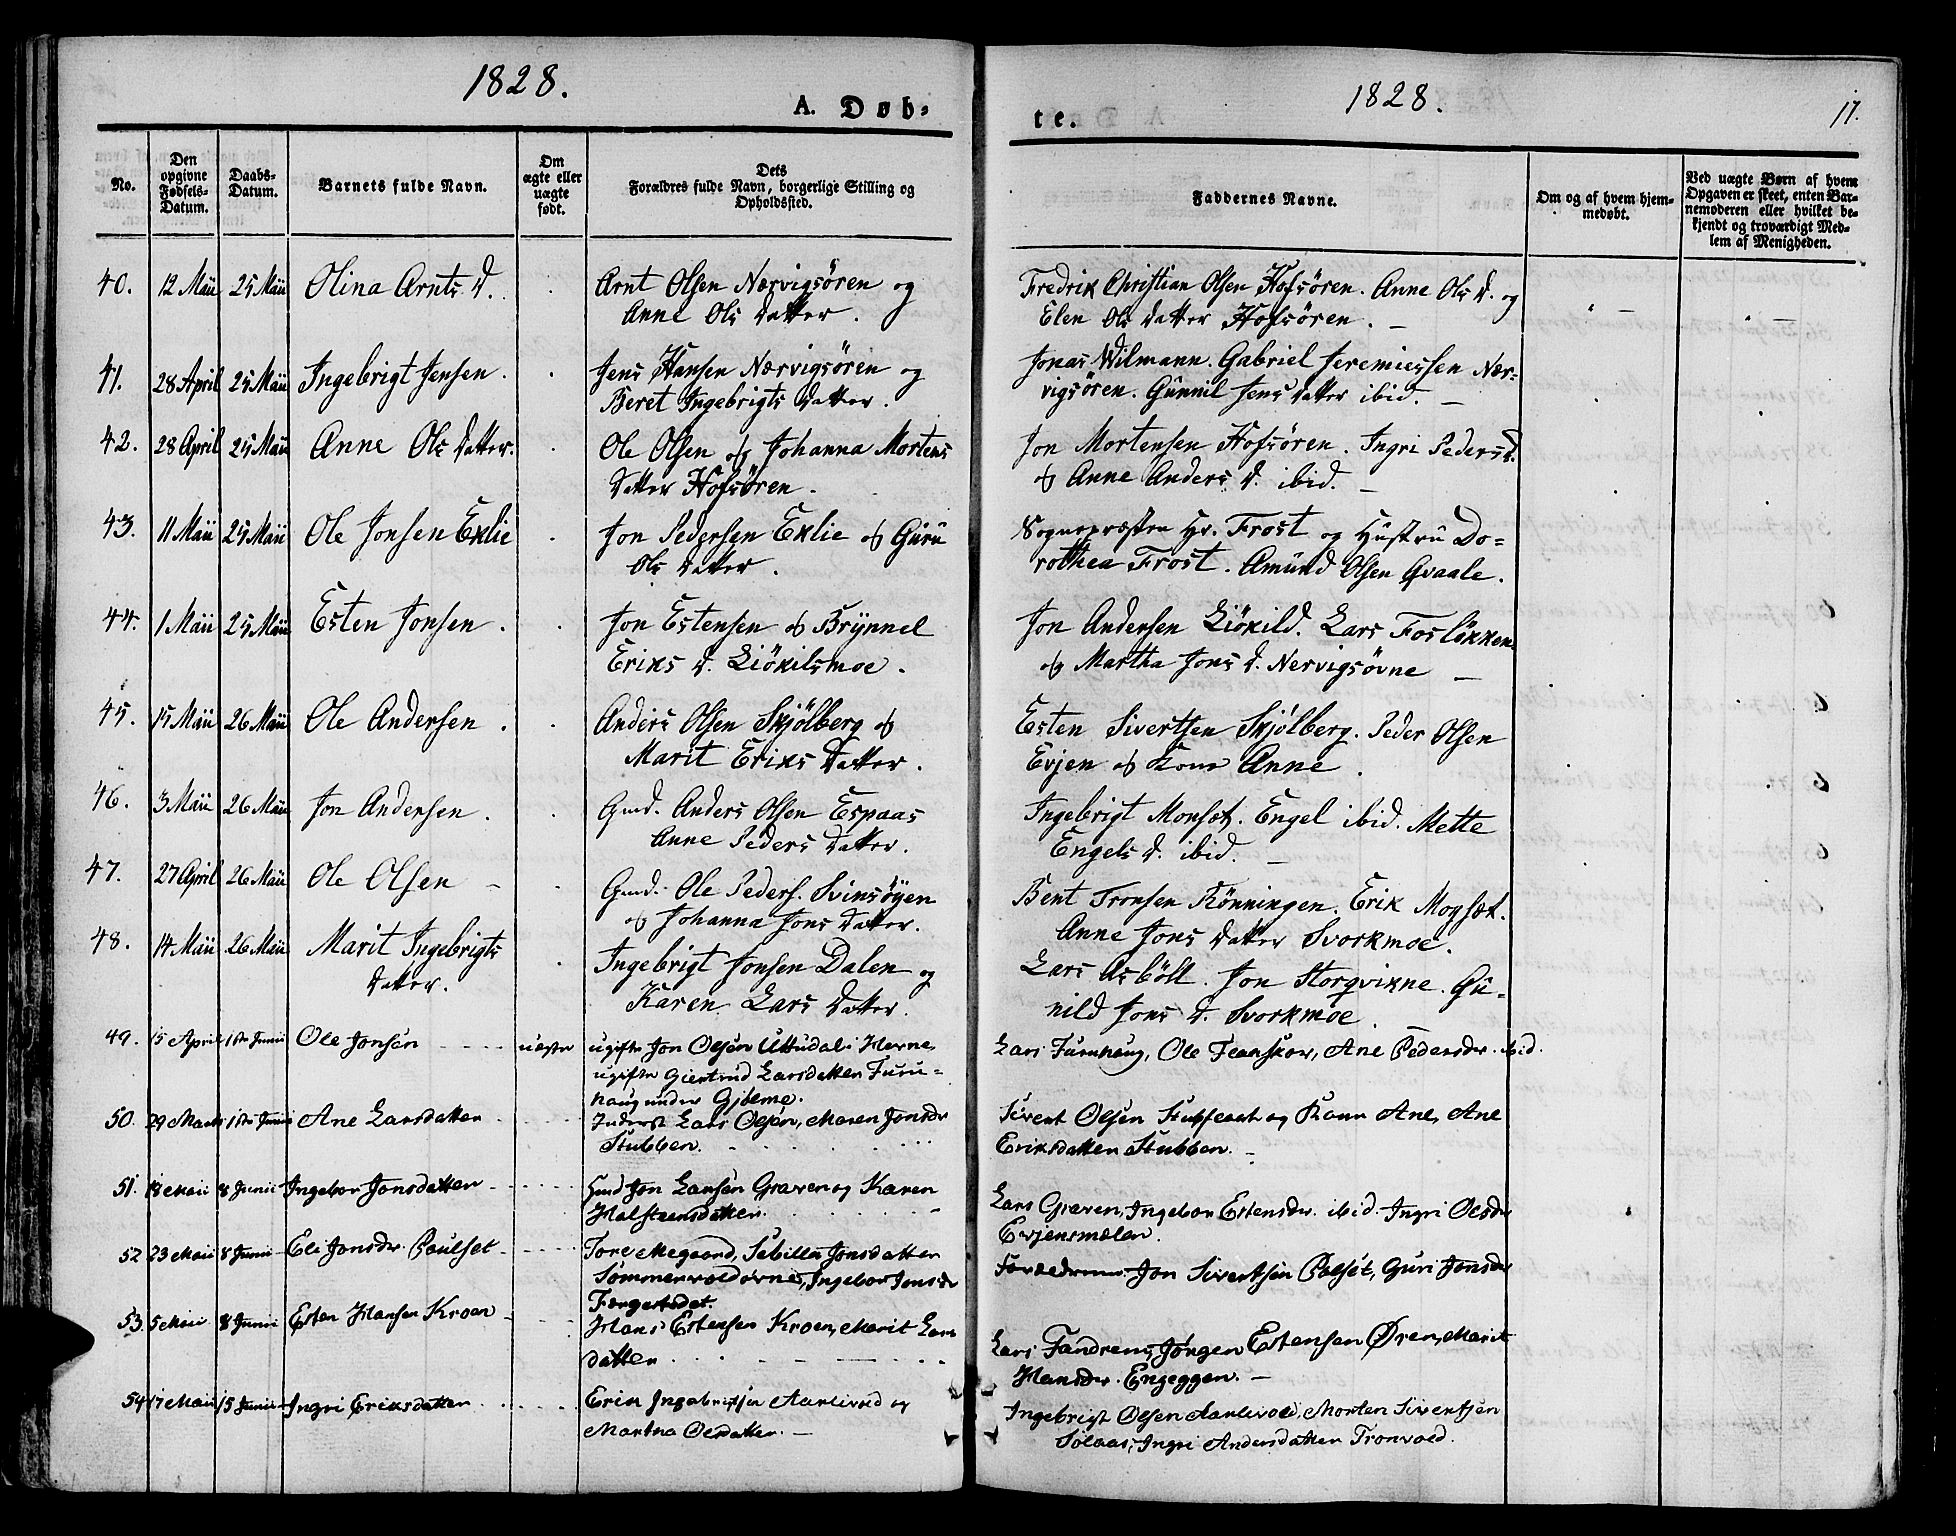 1828.
A. Døb-
No.
Den opgivne Fødsels-Datum.
Daabs-Datum.
Barnets fulde Navn.
Om ægte eller uægte født.
Dets Forældres fulde Navn, borgerlige Stilling og Opholdssted.
40. 12 Maii 25 Maii Olina Arnts D. Arnt Olsen Nærvigsören og
Anne Ols Datter.
41. 28 April 25 Maii Ingebrigt Jensen. Jens Hansen Nærvigsören og
Beret Ingebrigts Datter.
42. 28 April 25 Maii Anne Ols Datter. Ole Olsen og Johanna Mortens
Datter Hofsören.
43. 11 Maii 25 Maii Ole Jonsen Eklie Jon Pedersen Eklie og Guru
Ols Datter.
44. 1 Maii 25 Maii Esten Jonsen. Jon Estensen og Brynnel
Eriks D. Liökilsmoe.
45. 15 Maii 26 Maii Ole Andersen. Anders Olsen Skjölberg og
Marit Eriks Datter.
46. 3 Maii 26 Maii Jon Andersen. Gmd. Anders Olsen Espaas
Anne Peders Datter.
47. 27 April 26 Maii Ole Olsen – Gmd. Ole Peders. Svinsöyen
og Johanna Jons Datter.
48. 14 Maii 26 Maii Marit Ingebrigts
Datter.
Ingebrigt Jonsen Dalen og
Karen Lars Datter.
49. 15 April 1ste Junii Ole Jonsen uægte ugifte Jon Olsen Uttudal i Hevne,
ugifte Giertrud Larsdatter Furu-
haug under Gjölme.
50. 29 Marts 1ste Junii Ane Larsdatter Inderst Lars Olsen, Maren Jonsdr
Stubben.
51. 18 Maii 8 Junii Ingebor Jonsdatter Gmd Jon Larsen Graven og Karen
Halsteensdatter.
52 23 Maii 8 Junii Eli Jonsdr. Poulset Tore Megaard, Sibilla Jonsdatter
Sommervoldovne, Ingebor Jonsdr
53. 5 Maii 8 Junii Esten Hansen Kroen Hans Estensen Kroen, Marit Lars
datter
54 17 Maii 15 Junii Ingri Eriksdatter Erik Ingebrigtsen Aarlivold og
Martha Olsdatter. –
1828.
17.
te.
Faddernes Navne.
Om og af hvem hjem-
medøbt.
Ved uægte Børn af hvem
Opgaven er skeet, enten Bar-
nemoderen eller hvilket be-
kjendt og troværdigt Med-
lem af Menigheden.
Fredrik Christian Olsen Hofsören. Anne Ols D. og
Elen Ols Datter Hofsören. –
Jonas Wilmann. Gabriel Jeremiessen Nær-
vigsören. Gunnil Jens Datter ibid. –
Jon Mortensen Hofsören. Ingri Peders D.
og Anne Anders D. ibid. –
Sognepræsten Hr. Frost og Hustru Do-
rothea Frost. Amund Olsen Qvaale.
Jon Andersen Liökild. Lars Foslökken
og Martha Jons D. Nervigsövne –
Esten Sivertsen Skjölberg. Peder Olsen
Evjen og Kone Anne.
Ingebrigt Monset. Engel ibid. Mette
Engels D. ibid. –
Bent Tronsen Rönningen. Erik Mogset.
Anne Jons Datter Svorkmoe.
Lars Asböll. Jon Storqvikne. Gu-
nild Jons D. Svorkmoe.
Lars Furuhaug, Ole Teanskov, Ane Pedersdr. ibid.
Sivert Olsen og Kone Ane, Ane
Eriksdatter Stubben. –
Lars Graven, Ingebor Estensdr. ibid. Ingri Olsdr
Evjensmælen.
Forældrene Jon Sivertsen Polset, Guri Jonsdr
Lars Fandrem, Jørgen Estensen Øren, Marit
Hansdr. Engeggen. –
Ingebrigt Olsen Aarlivold, Morten Sivertsen
Solaas, Ingri Andersdatter Tronvold.